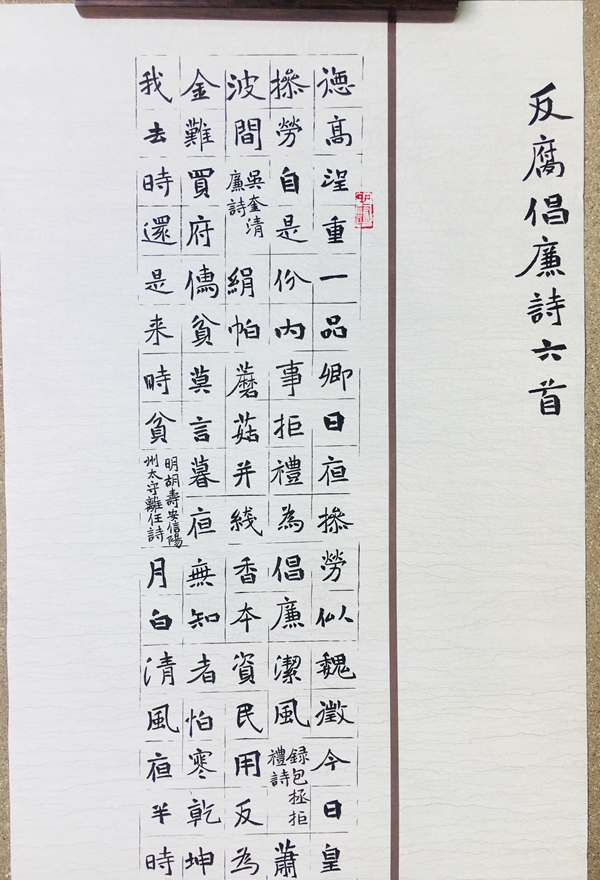 反腐倡廉詩六首
德高望重一品卿日夜操勞似魏徵今日皇
操勞自是份內事拒禮為倡廉潔風
錄包拯拒
禮詩
蕭
波間
吳奎清
廉詩
絹帕蘑菇并綫香本資民用反為
金難買府貧莫言暮夜無知者怕寒乾坤
我去時還是来時貧
明胡壽安信陽
州太守離任詩
月白清風夜半時